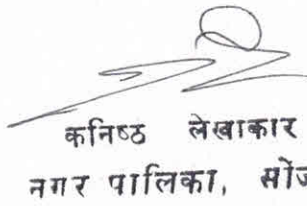 कनिष्ठ लेखाकार
नगर पालिका,